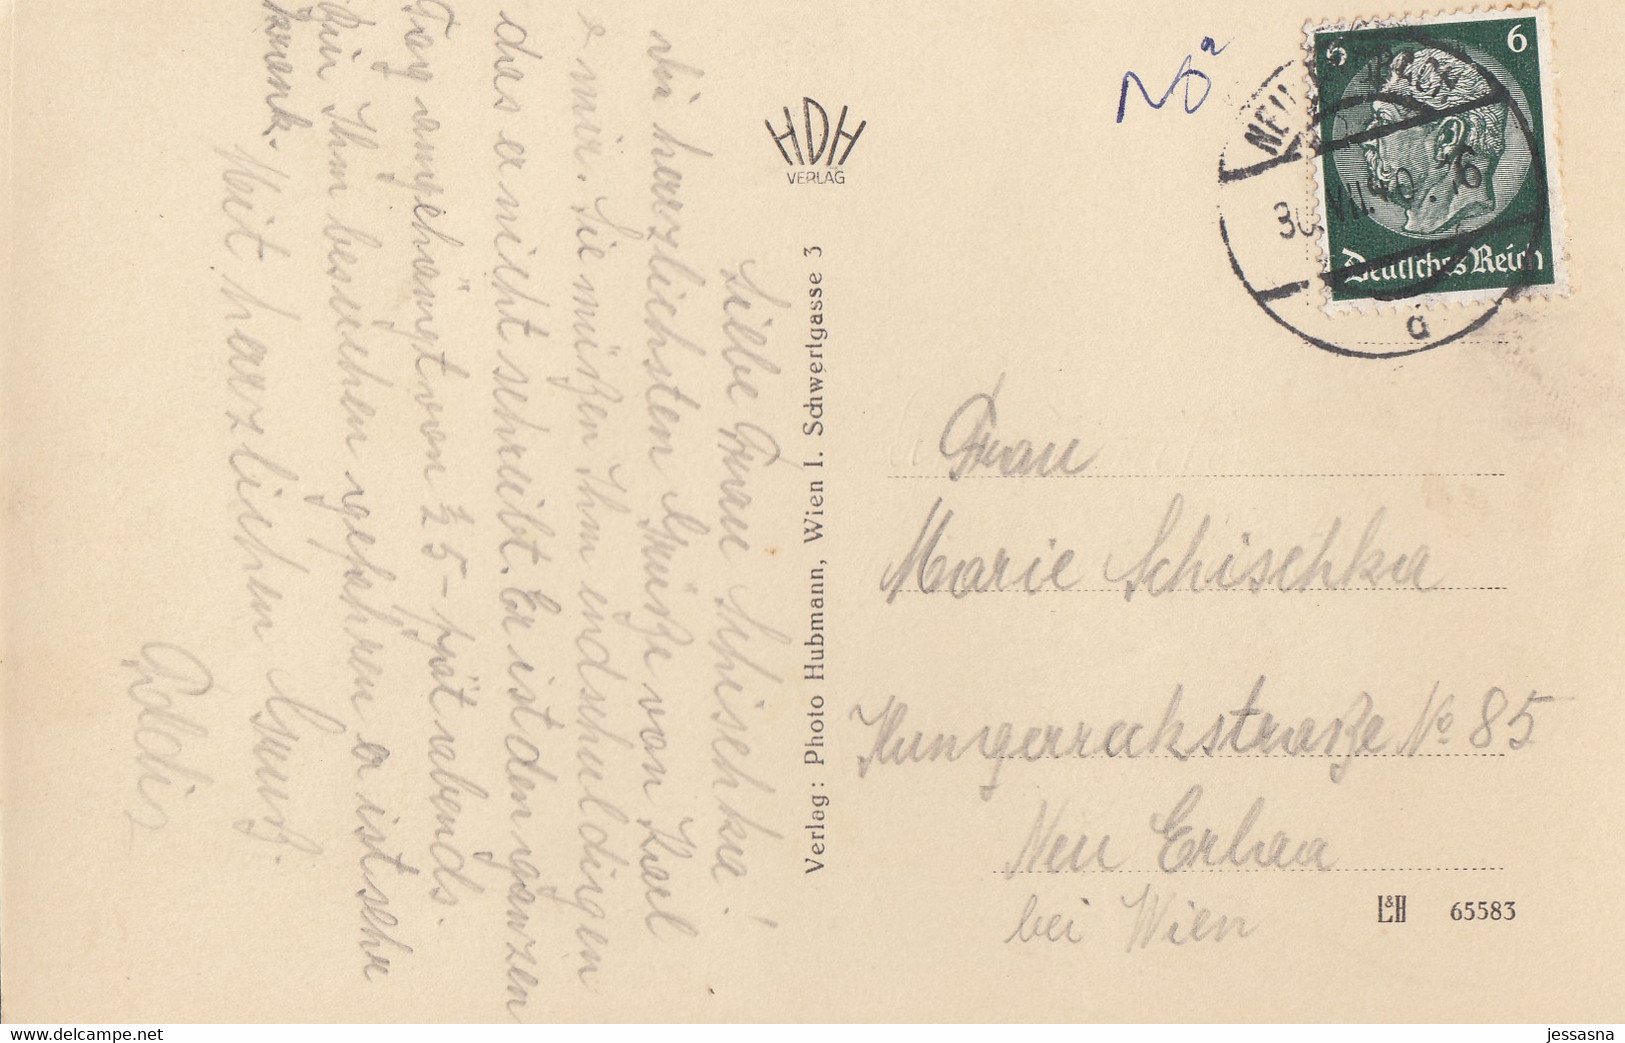 Liebe Frau Schischka!
die herzlichsten Grüße von Karl
& mir. Sie müßen Ihm endschuldigen
das er nicht schreibt. Er ist den ganzen
Tag angehängt von ½ 5 - spät abends.
bin Ihm besuchen gefahren er ist sehr
krank.
Mit herzlichen Gruß.
HDH
VERLAG
Verlag: Photo Hubmann, Wien I. Schwertgasse 3
6 6
Deutsches Reich
a
Frau
Marie Schischka
No 85
Neu Erlaa
bei Wien
L&H 65583
www.delcampe.net
jessasna